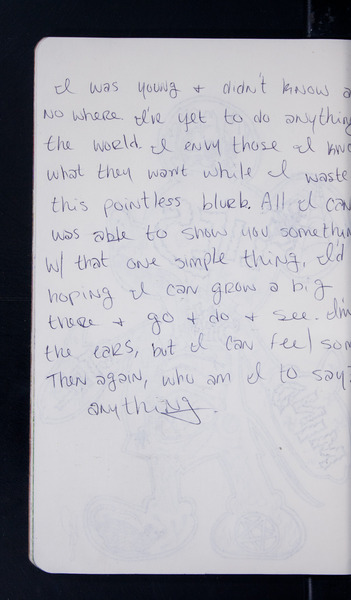 I was young + didn't know a
no where. I've yet to do anything
the world. I envy those I kno
what they want while I waste
this pointless blurb. All I can
was able to show you somethin
w/ that one simple thing, I'd
hoping I can grow a big
there + go + do + see. I'm
the ears, but I can feel som
Then again, who am I to say?
anything.